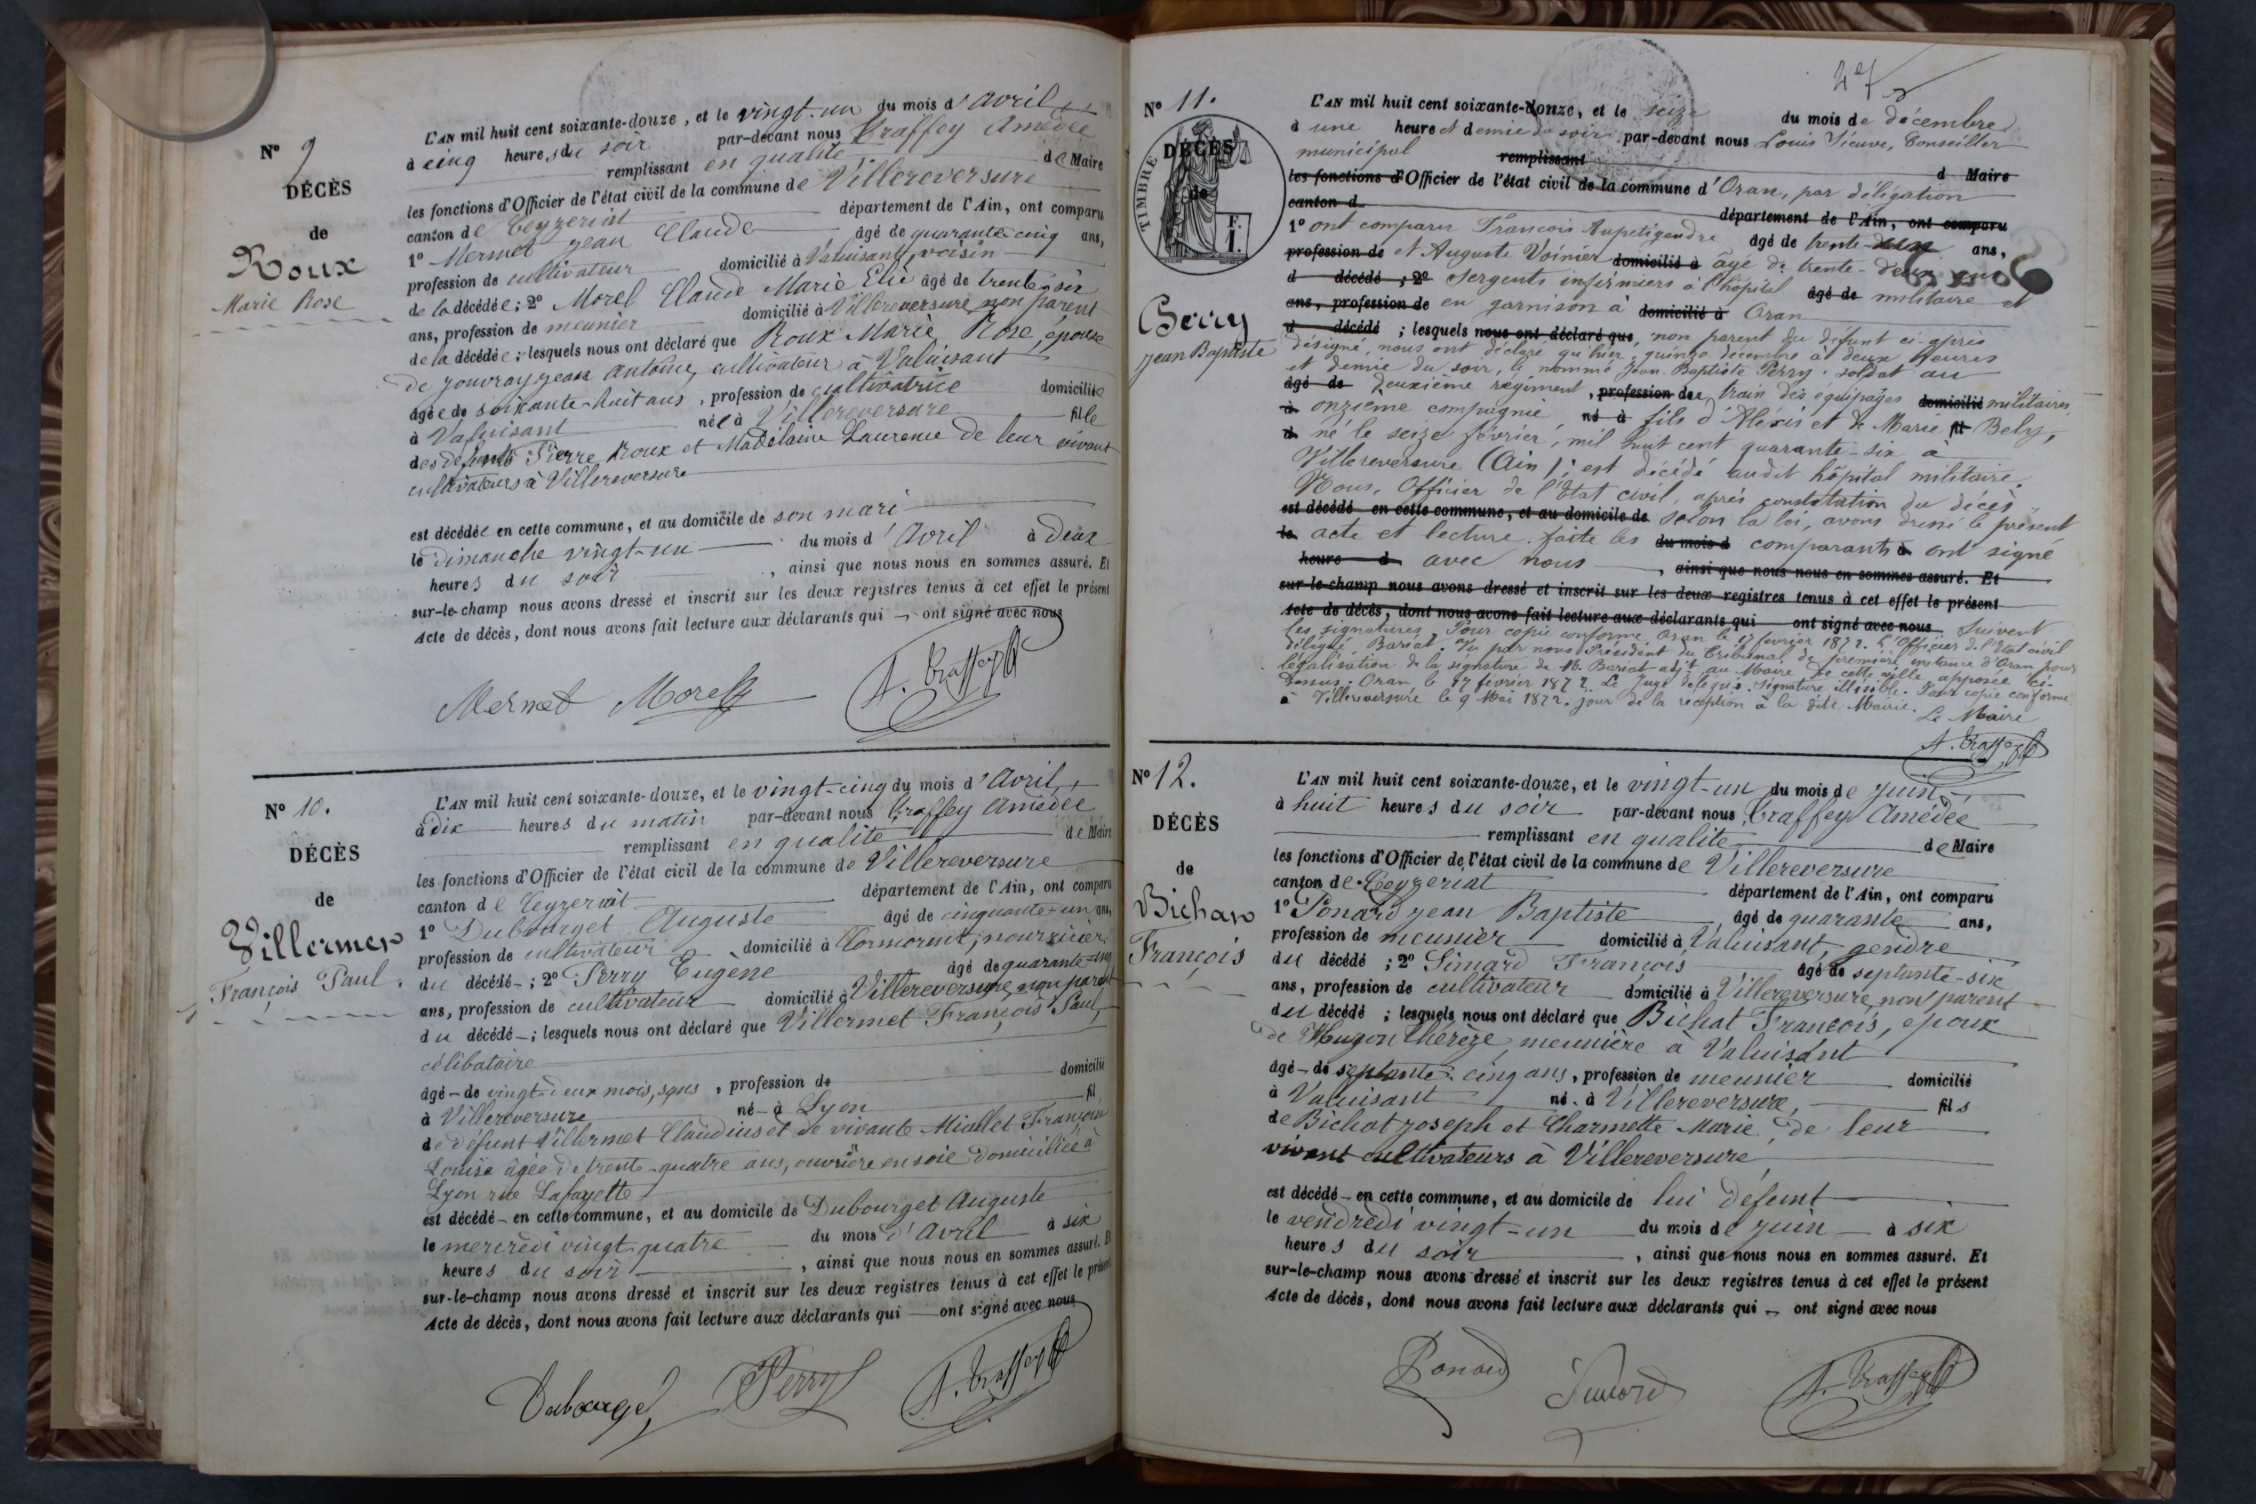 N° 9
DÉCÈS
de
Roux
Marie Rose
L'AN mil huit cent soixante-douze, et le vingt-un du mois d'avril
à cinq heures du soir par-devant nous Traffey Amédée
remplissant en qualité de Maire
les fonctions d'Officier de l'état civil de la commune de Villereversure
canton de Ceyzeriat département de l'Ain, ont comparu
1° Mermet Jean Claude âgé de quarante cinq ans,
profession de cultivateur domicilié à Valuisant, voisin
de la décédée; 2° Morel Claude Marie Elie âgé de trente six
ans, profession de meunier domicilié à Villereversure non parent
de la décédée; lesquels nous ont déclaré que Roux Marie Rose, épouse
de Jouvray Jean Antoine, cultivateur à Valuisant
âgée de soixante-huit ans, profession de cultivatrice domiciliée
à Valuisant née à Villereversure fille
des défunts Pierre Roux et Madelaine Laurence de leur vivant
cultivateurs à Villereversure
est décédée en cette commune, et au domicile de son mari
le dimanche vingt-un du mois d'Avril à deux
heures du soir, ainsi que nous nous en sommes assuré. Et
sur-le-champ nous avons dressé et inscrit sur les deux registres tenus à cet effet le présent
Acte de décès, dont nous avons fait lecture aux déclarants qui ont signé avec nous
Mermet Morel A. Traffey
N° 10.
DÉCÈS
de
Villermet
François Paul.
L'AN mil huit cent soixante-douze, et le vingt-cinq du mois d'Avril,
à dix heures du matin par-devant nous Traffey Amédée
remplissant en qualité de Maire
les fonctions d'Officier de l'état civil de la commune de Villereversure
canton de Ceyzeriat département de l'Ain, ont comparu
1° Dubourget Auguste âgé de cinquante-un ans,
profession de cultivateur domicilié à Cormorent, nourricier
du décédé; 2° Perry Eugène âgé de quarante-cinq
ans, profession de cultivateur domicilié à Villereversure, non parent
du décédé; lesquels nous ont déclaré que Villermet François Paul,
célibataire
âgé de vingt-deux mois, sans, profession de domicilié
à Villereversure né à Lyon fil
de défunt Villermet Claudius et de vivante Miollet François
Louise âgée de trente-quatre ans, ouvrière en soie domiciliée à
Lyon rue Lafayette
est décédé en cette commune, et au domicile de Dubourget Auguste
le mercredi vingt-quatre du mois d'Avril à six
heures du soir, ainsi que nous nous en sommes assuré. E
sur-le-champ nous avons dressé et inscrit sur les deux registres tenus à cet effet le présent
Acte de décès, dont nous avons fait lecture aux déclarants qui ont signé avec nous
Dubourget Perry A. Traffey
N° 11.
TIMBRE
F. 1.
DÉCÈS
de
Perry
Jean Baptiste
L'AN mil huit cent soixante-onze, et le seize du mois de décembre
à une heure et demie du soir par-devant nous Louis Vieuve, Conseiller
municipal remplissant d Maire
les fonctions d'Officier de l'état civil de la commune d'Oran, par délégation
canton d département de l'Ain, ont comparu
1° ont comparu François Aupetigendre âgé de trente- ans,
profession de et Auguste Voinier domicilié à âgé de trente-deux ans
d décédé; 2° Sergents infirmiers à l'hôpital âgé de militaire et
ans, profession de en garnison à domicilié à Oran
d décédé; lesquels nous ont déclaré que, non parent du défunt ci-après
désigné, nous ont déclaré qu'hier quinze décembre à deux heures
et demie du soir, le nommé Jean-Baptiste Perry, soldat au
âgé de deuxième régiment, profession de du train des équipages domicilié militaires,
à onzième compagnie né à fils d'Alexis et de Marie fil Bely,
d né le seize février, mil huit cent quarante-six à
Villereversure (Ain); est décédé audit hôpital militaire.
Nous, Officier de l'Etat civil, après constatation du décès
est décédé en cette commune, et au domicile de selon la loi, avons dressé le présent
le acte et lecture faite les du mois d comparants à ont signé
heure d avec nous, ainsi que nous nous en sommes assuré. Et
sur-le-champ nous avons dressé et inscrit sur les deux registres tenus à cet effet le présent
Acte de décès, dont nous avons fait lecture aux déclarants qui ont signé avec nous Suivent
les signatures. Pour copie conforme, Oran le 17 février 1872. L'Officier de l'Etat civil
délégué, Bariat. Vu par nous Président du Tribunal de première instance d'Oran pour
légalisation de la signature de M. Bariat adj't au Maire de cette ville apposée ci-
dessus. Oran le 17 février 1872. Le Juge délégué. Signature illisible. Pour copie conforme
à Villereversure le 9 Mai 1872. jour de la réception à la dite Mairie.
Le Maire
A. Traffey
N° 12.
DÉCÈS
de
Bichat
François
L'AN mil huit cent soixante-douze, et le vingt-un du mois de juin
à huit heures du soir par-devant nous Traffey Amédée
remplissant en qualité de Maire
les fonctions d'Officier de l'état civil de la commune de Villereversure
canton de Ceyzeriat département de l'Ain, ont comparu
1° Ponard Jean Baptiste âgé de quarante ans,
profession de meunier domicilié à Valuisant, gendre
du décédé; 2° Simard François âgé de septante-six
ans, profession de cultivateur domicilié à Villereversure, non parent
du décédé; lesquels nous ont déclaré que Bichat François, époux
de Hugon Thérèze, meunière à Valuisant
âgé de septante-cinq ans, profession de meunier domicilié
à Valuisant né à Villereversure, fils
de Bichat Joseph et Charmette Marie, de leur
vivant cultivateurs à Villereversure
est décédé en cette commune, et au domicile de lui défunt
le vendredi vingt-un du mois de juin à six
heures du soir, ainsi que nous nous en sommes assuré. Et
sur-le-champ nous avons dressé et inscrit sur les deux registres tenus à cet effet le présent
Acte de décès, dont nous avons fait lecture aux déclarants qui ont signé avec nous
Ponard Simard A. Traffey